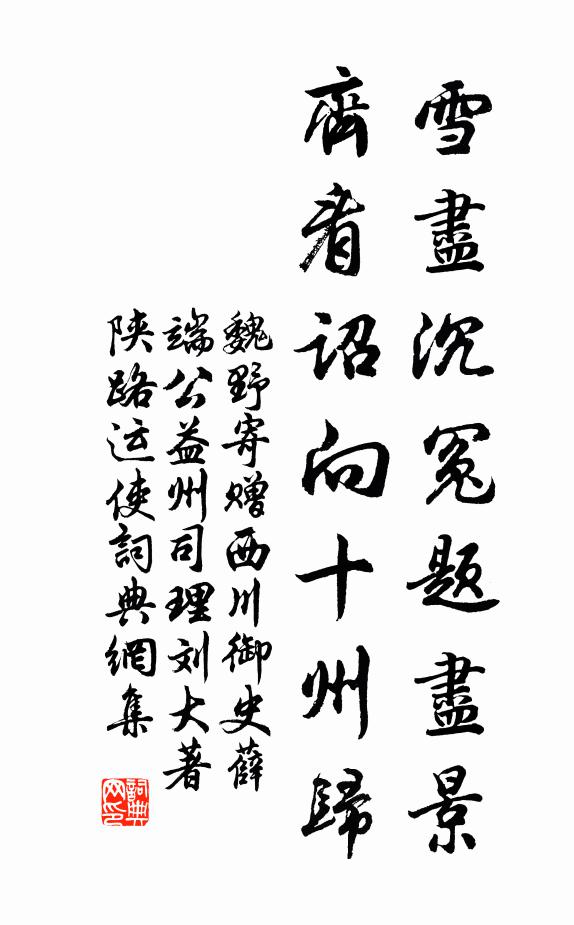 雪盡沉冤題盡景
齊看詔向十州歸
魏野寄贈西川御史薛
端公益州司理刘大著
陕路运使詞典網集
詞典網印